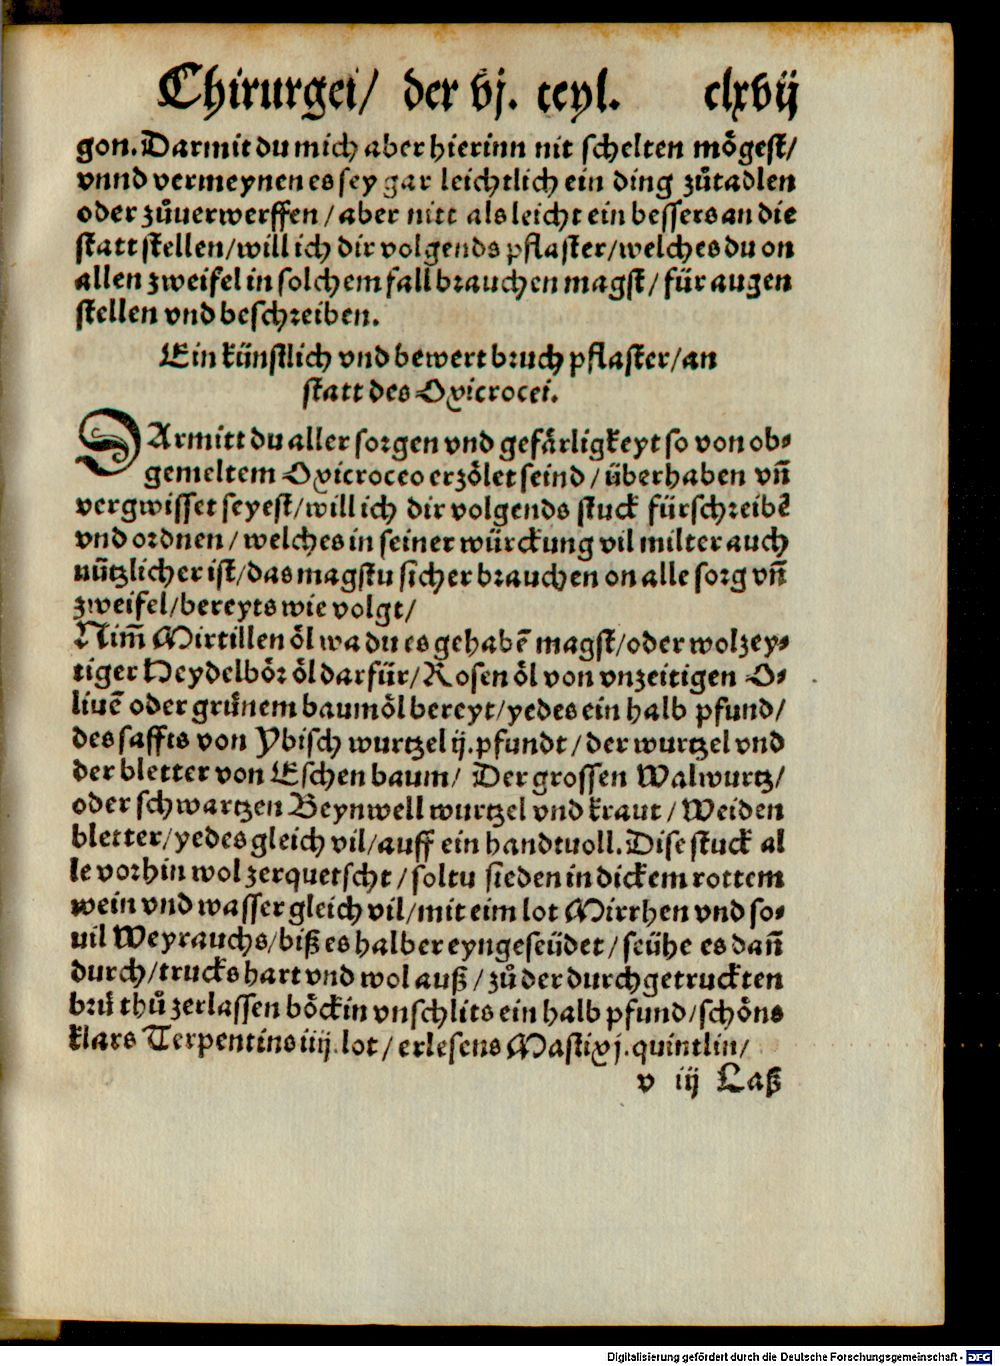 Chirurgei/ der vj. teyl. clxvij
gon. Darmit du mich aber hierinn nit schelten mögest/
vnnd vermeynen es sey gar leichtlich ein ding zůtadlen
oder zůuerwerffen/ aber nitt als leicht ein bessers an die
statt stellen/ will ich dir volgends pflaster/ welches du on
allen zweifel in solchem fall brauchen magst/ für augen
stellen vnd beschreiben.
Ein künstlich vnd bewert bruch pflaster/ an
statt des Oxicrocei.
DArmitt du aller sorgen vnd gefärligkeyt so von ob⸗
gemeltem Oxicroceo erzölet seind/ überhaben vñ
vergwisset seyest/ will ich dir volgends stuck fürschreibē
vnd ordnen/ welches in seiner würckung vil milter auch
nützlicher ist/ das magstu sicher brauchen on alle sorg vñ
zweifel/ bereyts wie volgt/
Nim̃ Mirtillen öl wa du es gehabē magst/ oder wolzey⸗
tiger Heydelbör öl darfür/ Rosen öl von vnzeitigen O⸗
liuē oder grůnem baumöl bereyt/ yedes ein halb pfund/
des saffts von Ybisch wurtzel ij. pfundt/ der wurtzel vnd
der bletter von Eschen baum/ Der grossen Walwurtz/
oder schwartzen Beynwell wurtzel vnd kraut/ Weiden
bletter/ yedes gleich vil/ auff ein handtuoll. Dise stuck al
le vorhin wol zerquetscht/ soltu sieden in dickem rottem
wein vnd wasser gleich vil/ mit eim lot Mirrhen vnd so⸗
uil Weyrauchs/ biß es halber eyngeseüdet/ seühe es dañ
durch/ trucks hart vnd wol auß/ zů der durchgetruckten
brů thů zerlassen böckin vnschlits ein halb pfund/ schöns
klars Terpentins iiij. lot/ erlesens Mastix j. quintlin/
v iij Laß
Digitalisierung gefördert durch die Deutsche Forschungsgemeinschaft - DFG